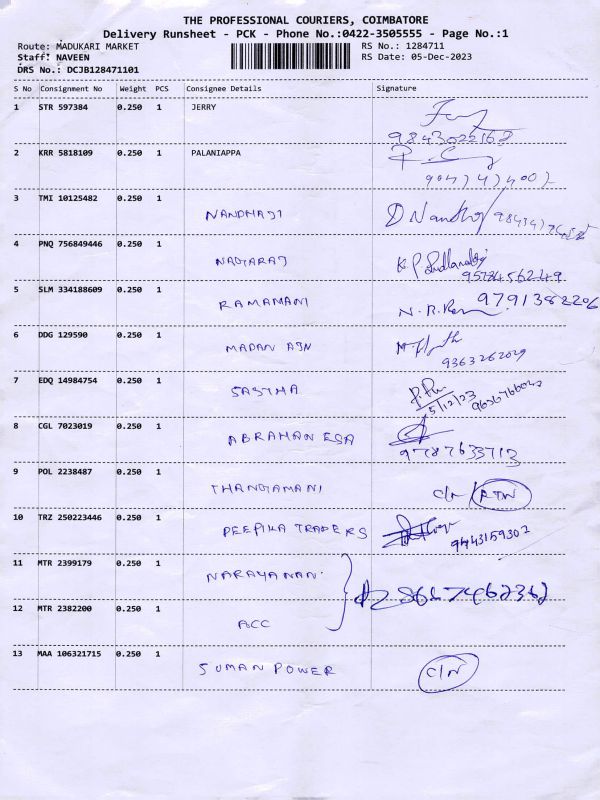 THE PROFESSIONAL COURIERS, COIMBATORE
Delivery Runsheet - PCK - Phone No.:0422-3505555 - Page No.:1
Route: MADUKARI MARKET RS No.: 1284711
Staff: NAVEEN RS Date: 05-Dec-2023
DRS No.: DCJB128471101
S No Consignment No Weight PCS Consignee Details Signature
1 STR 597384 0.250 1 JERRY
9843022168
2 KRR 5818109 0.250 1 PALANIAPPA
3 TMI 10125482 0.250 1
NANDHAJI D Nandhu
4 PNQ 756849446 0.250 1
NAGARAJ
9578456249
5 SLM 334188609 0.250 1
RAMAMANI N.R. 9791382206
6 DDG 129590 0.250 1
MADAN AJN
9363262029
7 EDQ 14984754 0.250 1
SASTHA 5/12/23
8 CGL 7023019 0.250 1
ABRAHAM ESA
9787633713
9 POL 2238487 0.250 1
THANGAMANI C/N RTN
10 TRZ 250223446 0.250 1
DEEPIKA TRADERS 9443159302
11 MTR 2399179 0.250 1
NARAYANAN
12 MTR 2382200 0.250 1
ACC
13 MAA 106321715 0.250 1
SUMAN POWER C/N